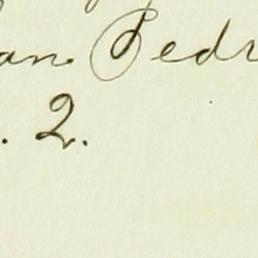 an Pedr
. 2.